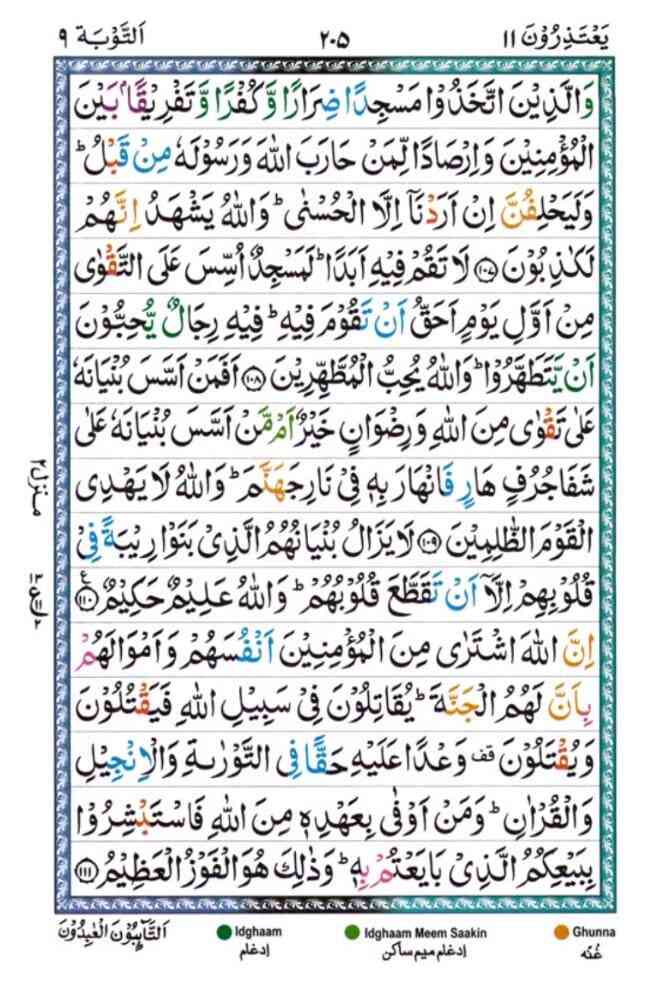 يَعْتَذِرُوْنَ ١١
٢٠٥
اَلتَّوْبَة ٩
وَالَّذِيْنَ اتَّخَذُوْا مَسْجِدًا ضِرَارًا وَّكُفْرًا وَّتَفْرِيْقًۢا بَيْنَ
الْمُؤْمِنِيْنَ وَاِرْصَادًا لِّمَنْ حَارَبَ اللّٰهَ وَرَسُوْلَهٗ مِنْ قَبْلُ ؕ
وَلَيَحْلِفُنَّ اِنْ اَرَدْنَاۤ اِلَّا الْحُسْنٰى ؕ وَاللّٰهُ يَشْهَدُ اِنَّهُمْ
لَكٰذِبُوْنَ ﴿١٠٧﴾ لَا تَقُمْ فِيْهِ اَبَدًا ؕ لَمَسْجِدٌ اُسِّسَ عَلَى التَّقْوٰى
مِنْ اَوَّلِ يَوْمٍ اَحَقُّ اَنْ تَقُوْمَ فِيْهِ ؕ فِيْهِ رِجَالٌ يُّحِبُّوْنَ
اَنْ يَّتَطَهَّرُوْا ؕ وَاللّٰهُ يُحِبُّ الْمُطَّهِّرِيْنَ ﴿١٠٨﴾ اَفَمَنْ اَسَّسَ بُنْيَانَهٗ
عَلٰى تَقْوٰى مِنَ اللّٰهِ وَرِضْوَانٍ خَيْرٌ اَمْ مَّنْ اَسَّسَ بُنْيَانَهٗ عَلٰى
شَفَا جُرُفٍ هَارٍ فَانْهَارَ بِهٖ فِيْ نَارِ جَهَنَّمَ ؕ وَاللّٰهُ لَا يَهْدِى
الْقَوْمَ الظّٰلِمِيْنَ ﴿١٠٩﴾ لَا يَزَالُ بُنْيَانُهُمُ الَّذِىْ بَنَوْا رِيْبَةً فِىْ
قُلُوْبِهِمْ اِلَّاۤ اَنْ تَقَطَّعَ قُلُوْبُهُمْ ؕ وَاللّٰهُ عَلِيْمٌ حَكِيْمٌ ﴿١١٠﴾ ع
اِنَّ اللّٰهَ اشْتَرٰى مِنَ الْمُؤْمِنِيْنَ اَنْفُسَهُمْ وَاَمْوَالَهُمْ
بِاَنَّ لَهُمُ الْجَنَّةَ ؕ يُقَاتِلُوْنَ فِىْ سَبِيْلِ اللّٰهِ فَيَقْتُلُوْنَ
وَيُقْتَلُوْنَ قف وَعْدًا عَلَيْهِ حَقًّا فِى التَّوْرٰىةِ وَالْاِنْجِيْلِ
وَالْقُرْاٰنِ ؕ وَمَنْ اَوْفٰى بِعَهْدِهٖ مِنَ اللّٰهِ فَاسْتَبْشِرُوْا
بِبَيْعِكُمُ الَّذِىْ بَايَعْتُمْ بِهٖ ؕ وَذٰلِكَ هُوَ الْفَوْزُ الْعَظِيْمُ ﴿١١١﴾
منزل ٢
اَلتَّآئِبُوْنَ الْعٰبِدُوْنَ
Idghaam
ادغام
Idghaam Meem Saakin
ادغام ميم ساكن
Ghunna
غُنّه